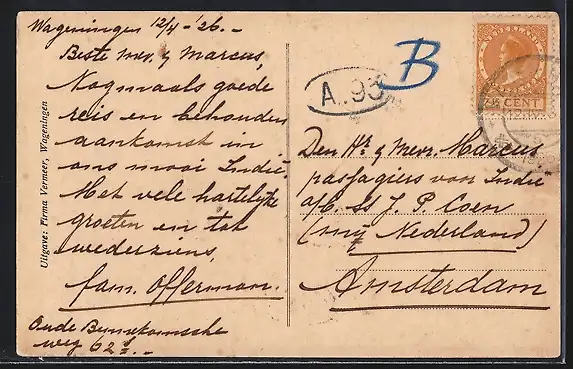 Wageningen 12/4 - '26. -
Beste mev. & Marcus,
Nogmaals goede
reis en behouden
aankomst in
ons mooi Indië.
Met vele hartelijke
groeten en tot
wederziens,
fam. Offerman.
Oude Bennekomsche
weg 62
Uitgave: Firma Vermeer, Wageningen
B
A..93
NEDERLAND
CENT
Den Hr. & Mevr. Marcus
passagiers voor Indië
a/b. SS J. P. Coen
(mij Nederland)
Amsterdam